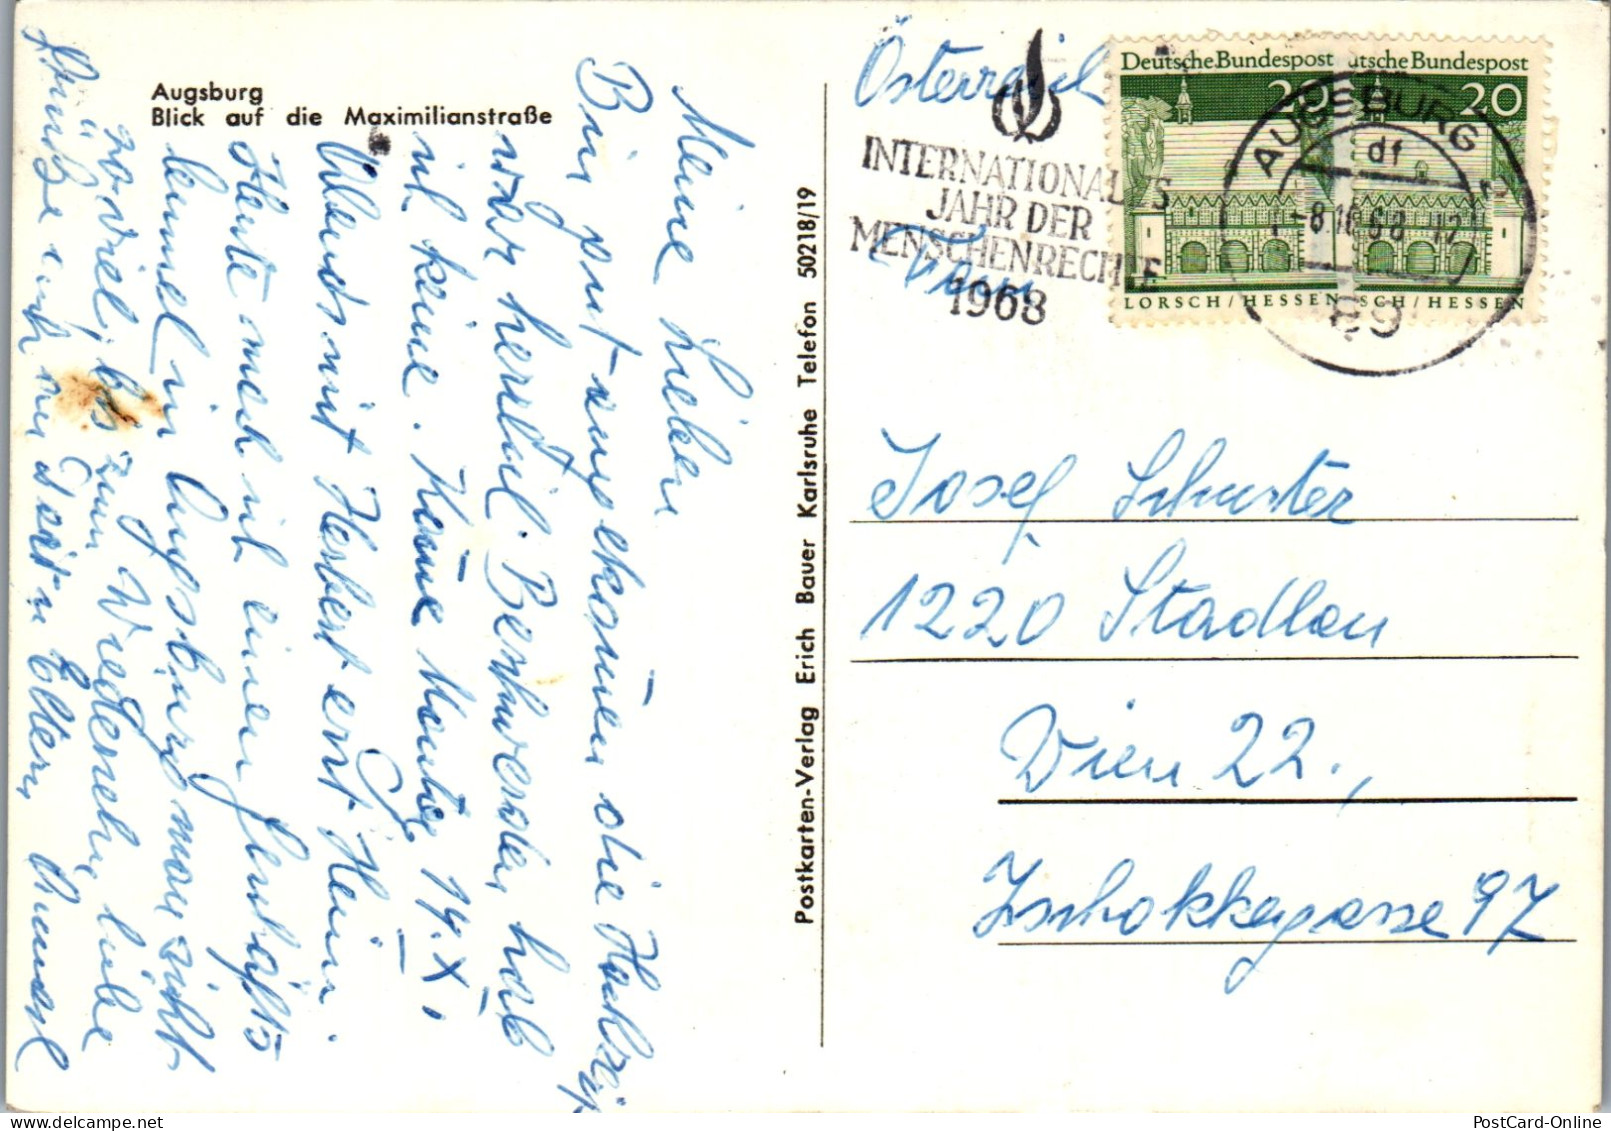 Augsburg
Blick auf die Maximilianstraße
Meine Lieben
Bin gut angekommen die Hochzeit
war herrlich. Beschwerden hab
ich keine. Komme Montag 14.X.
Abends mit Herbert erst Heim.
Heute mach ich einen
in Augsburg man sieht
so viel, bis zum Wiedersehn liebe
Grüße euch
Eltern
Postkarten-Verlag Erich Bauer Karlsruhe Telefon 50218/19
Österreich
INTERNATIONALES
JAHR DER
MENSCHENRECHTE
1968
Deutsche Bundespost
20
LORSCH/HESSEN
utsche Bundespost
20
SCH/HESSEN
AUGSBURG 2
df
-8.10.68-17
89
Josef Schuster
1220 Stadlau
Wien 22.,
Zschokkegasse 97
PostCard-Online